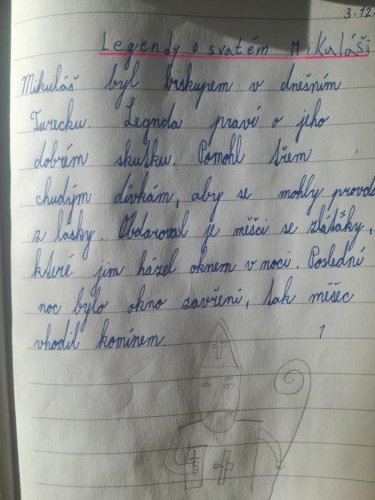 3.12.
Legendy o svatém Mikuláši
Mikuláš byl biskupem v dnešním
Turecku. Legnda praví o jeho
dobrém skutku. Pomohl třem
chudým dívkám, aby se mohly provda
z lásky. Obdaroval je měšci se zlaťáky,
které jim házel oknem v noci. Poslední
noc bylo okno zavřeni, tak měšec
vhodil komínem. 1